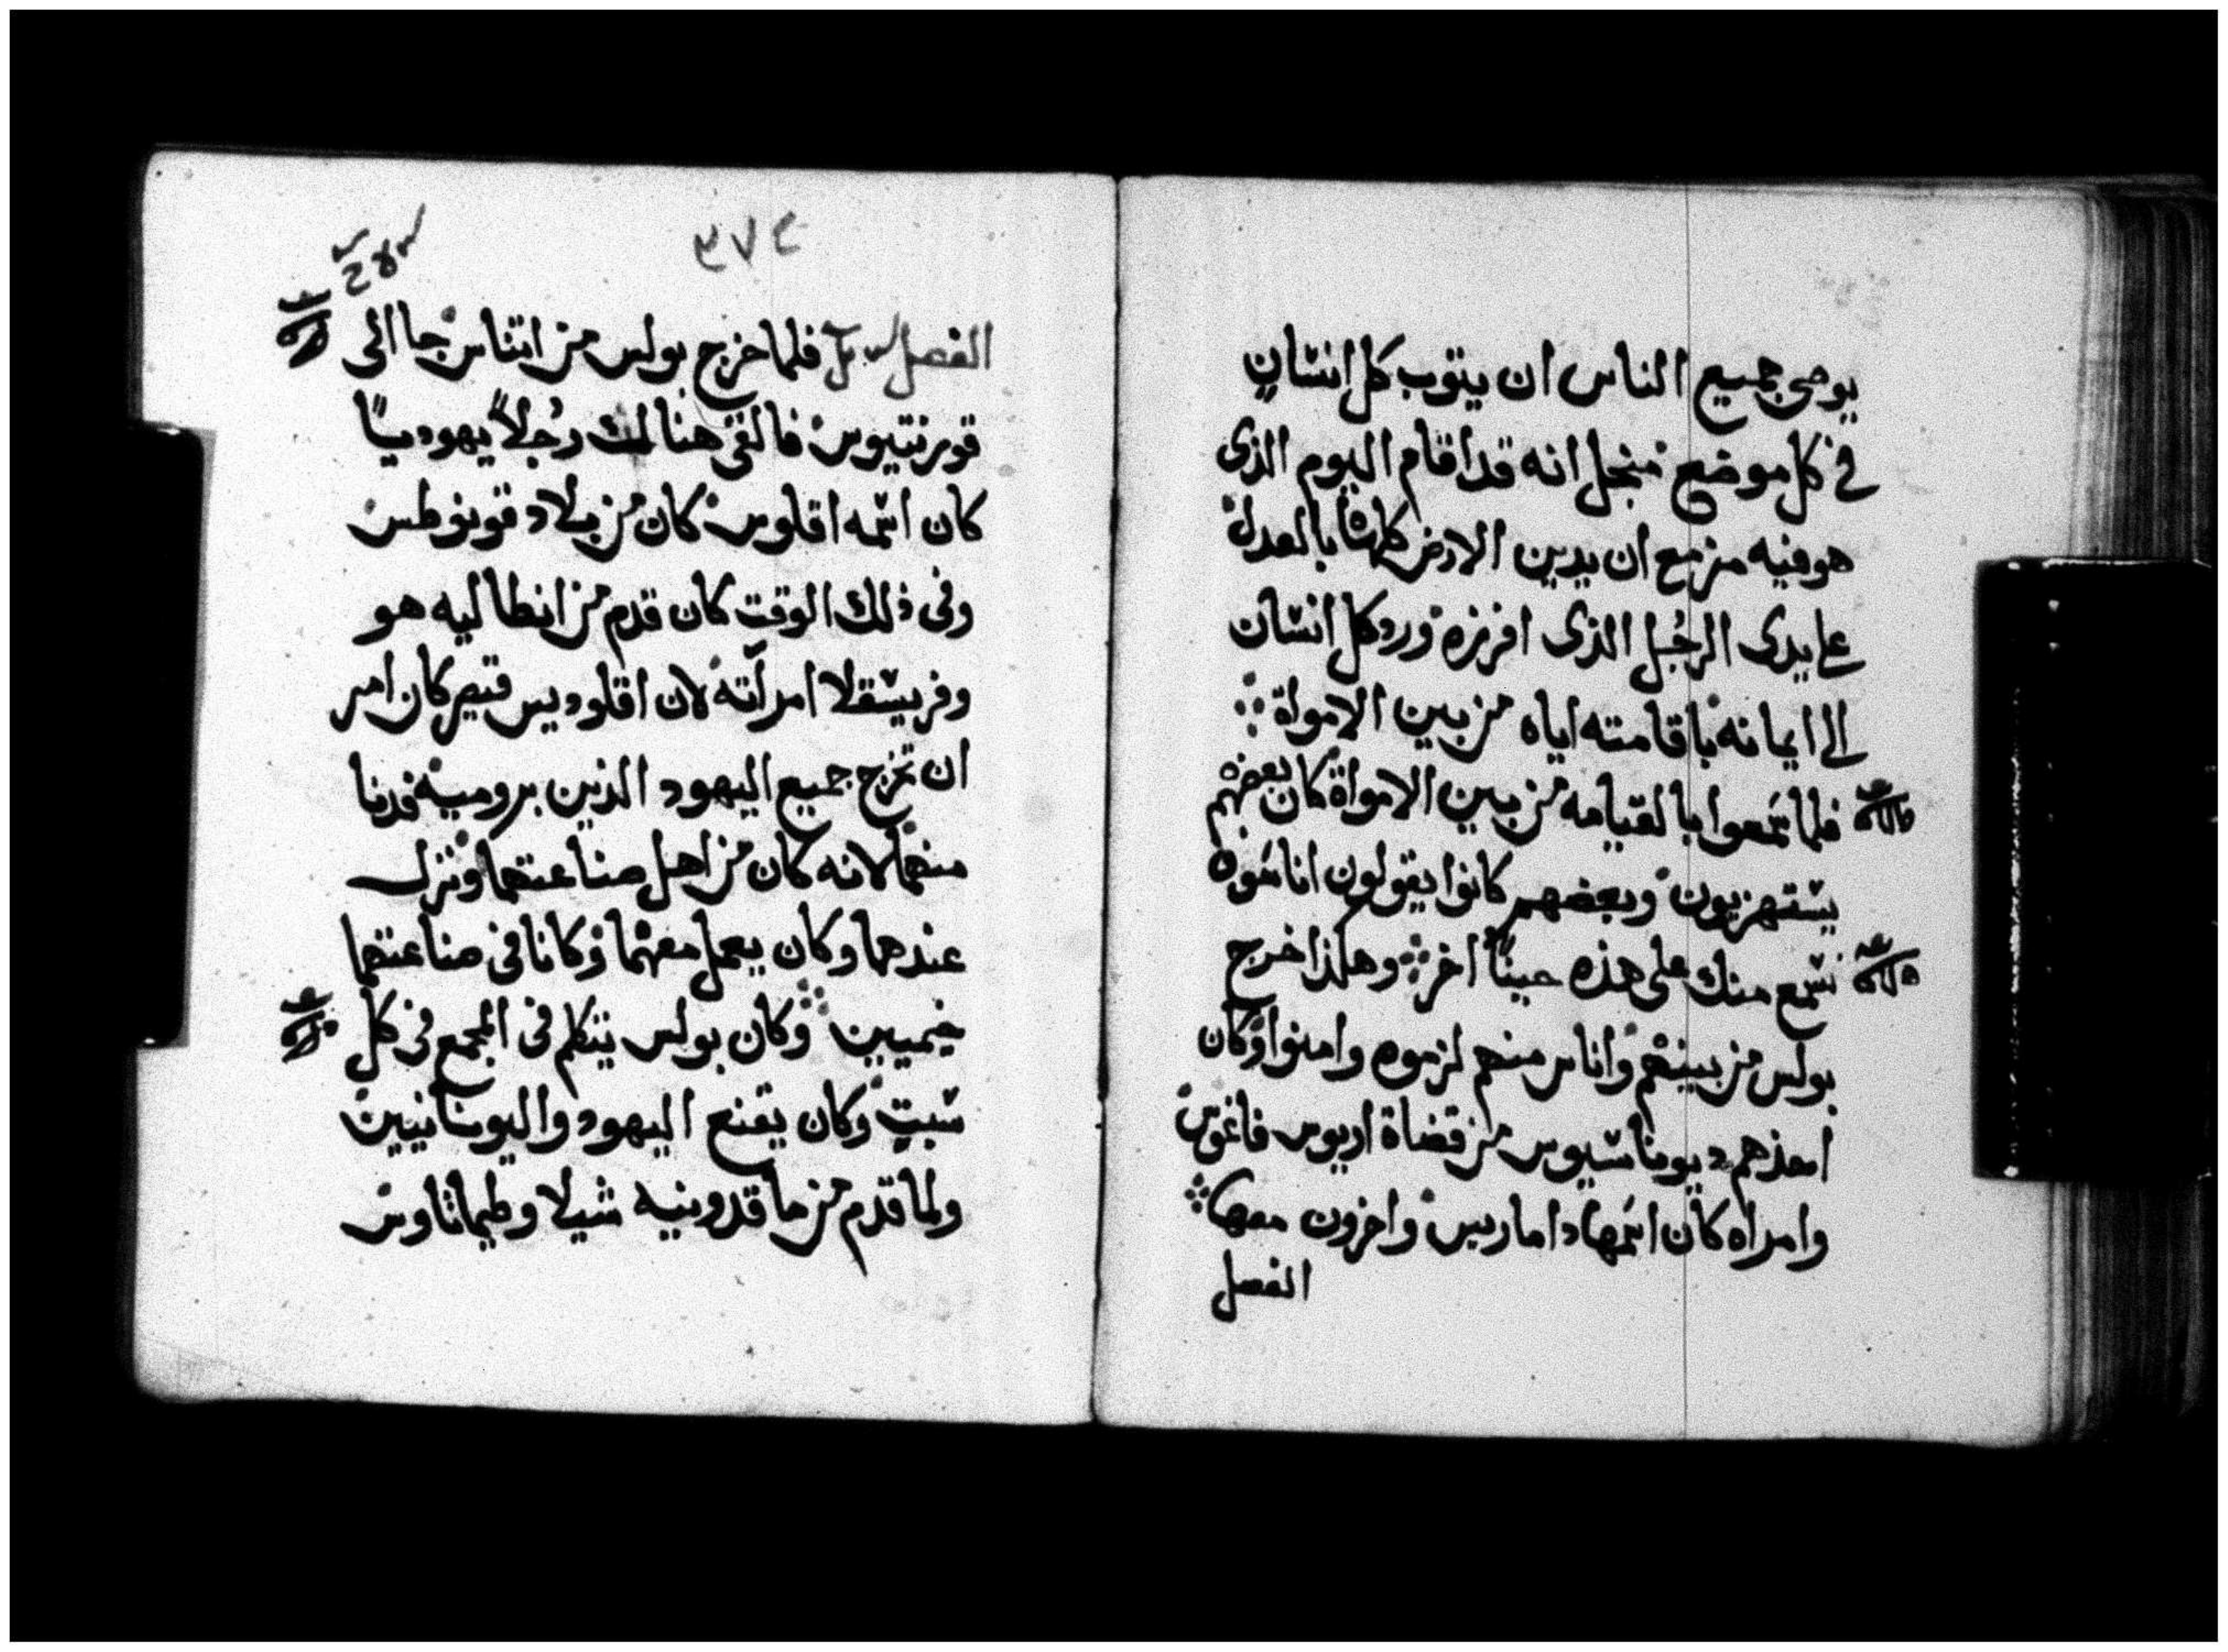 يوصى جميع الناس ان يتوب كل انسان
فى كل موضع منجل انه قد اقام اليوم الذى
هو فيه مزمع ان يدين الارض كلها بالعدل
على يدى الرجُل الذى افرزه ورد كل انسان
الى ايمانه باقامته اياه من بين الامواة
فلما سمعوا بالقيامه من بين الامواة كان بعضهم
يستهزيون وبعضهم كانوا يقولون انا سوف
نسمع منك على هذه حيناً اخر وهكذا خرج
بولس من بينهم واناس منهم لزموه وامنوا وكان
احدهم ديوناسيوس من قضاة اريوس فاغوس
وامراه كان اسمها داماريس واخرون معها
الفصل
٣٧٤
الفصل فلما خرج بولس من اتناس جا الى
قورنتيوس فالفى هنالك رجُلاً يهودياً
كان اسمه اقلوس كان من بلاد فونوطس
وفى ذلك الوقت كان قدم من انطاليه هو
وفريسقلا امرأته لان اقلوديس قيصر كان امر
ان تخرج جميع اليهود الذين برومية فدنا
منهما لانه كان من اهل صناعتهما ونزل
عندهما وكان يعمل معهما وكانا فى صناعتهما
خيميين وكان بولس يتكلم فى المجمع فى كل
سبت وكان يقنع اليهود واليونانيين
ولما قدم من ماقدونيه شيلا وطيماثاوس